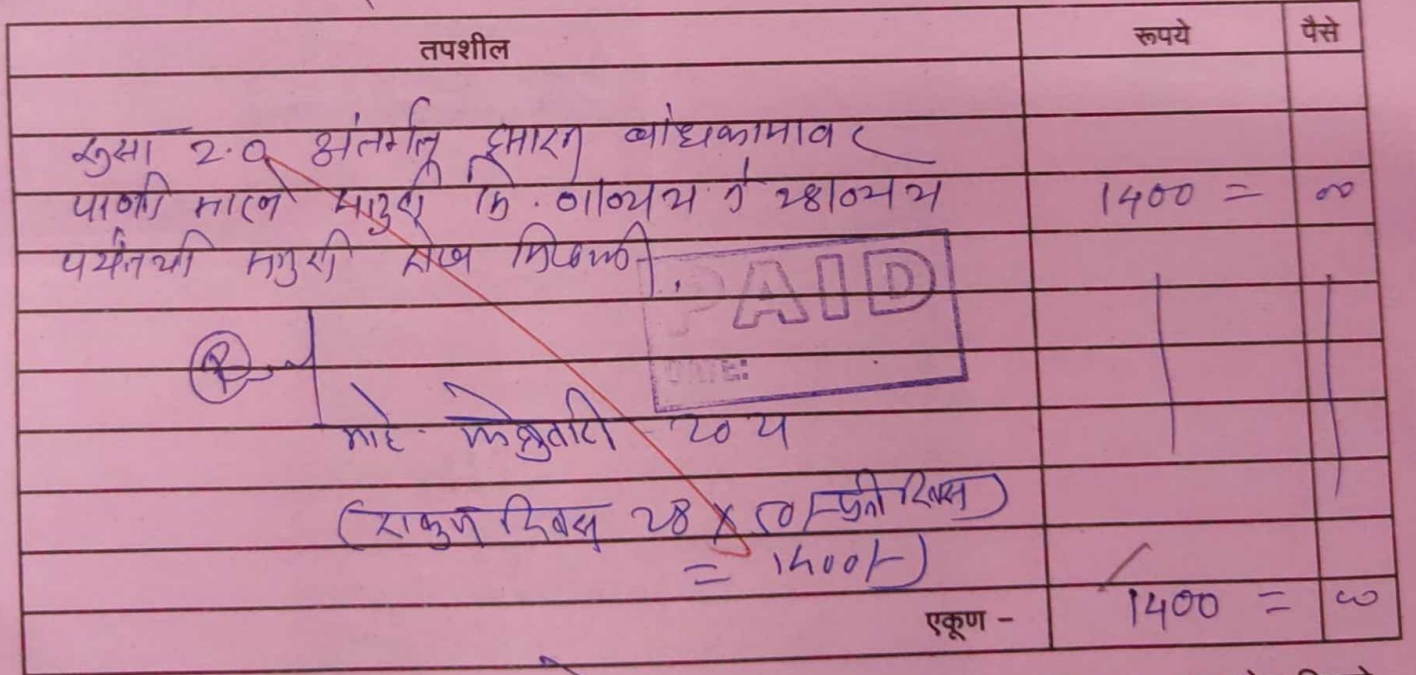 तपशील रूपये पैसे
रुसा 2.0 अंतर्गत इमारत बांधकामावर
पाणी मारणे मजुरी दि. 01/02/25 ते 28/02/25 1400 = 00
पर्यंतची मजुरी रोख मिळाली.
PAID
DATE:
माहे - फेब्रुवारी - 2025
(एकुण दिवस 28 X 50/- प्रती दिवस)
= 1400/-)
एकूण - 1400 = 00